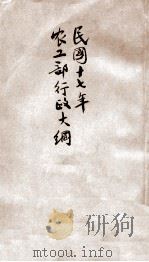 民國十七年
农工部行政大綱
研狗
mtoou.info